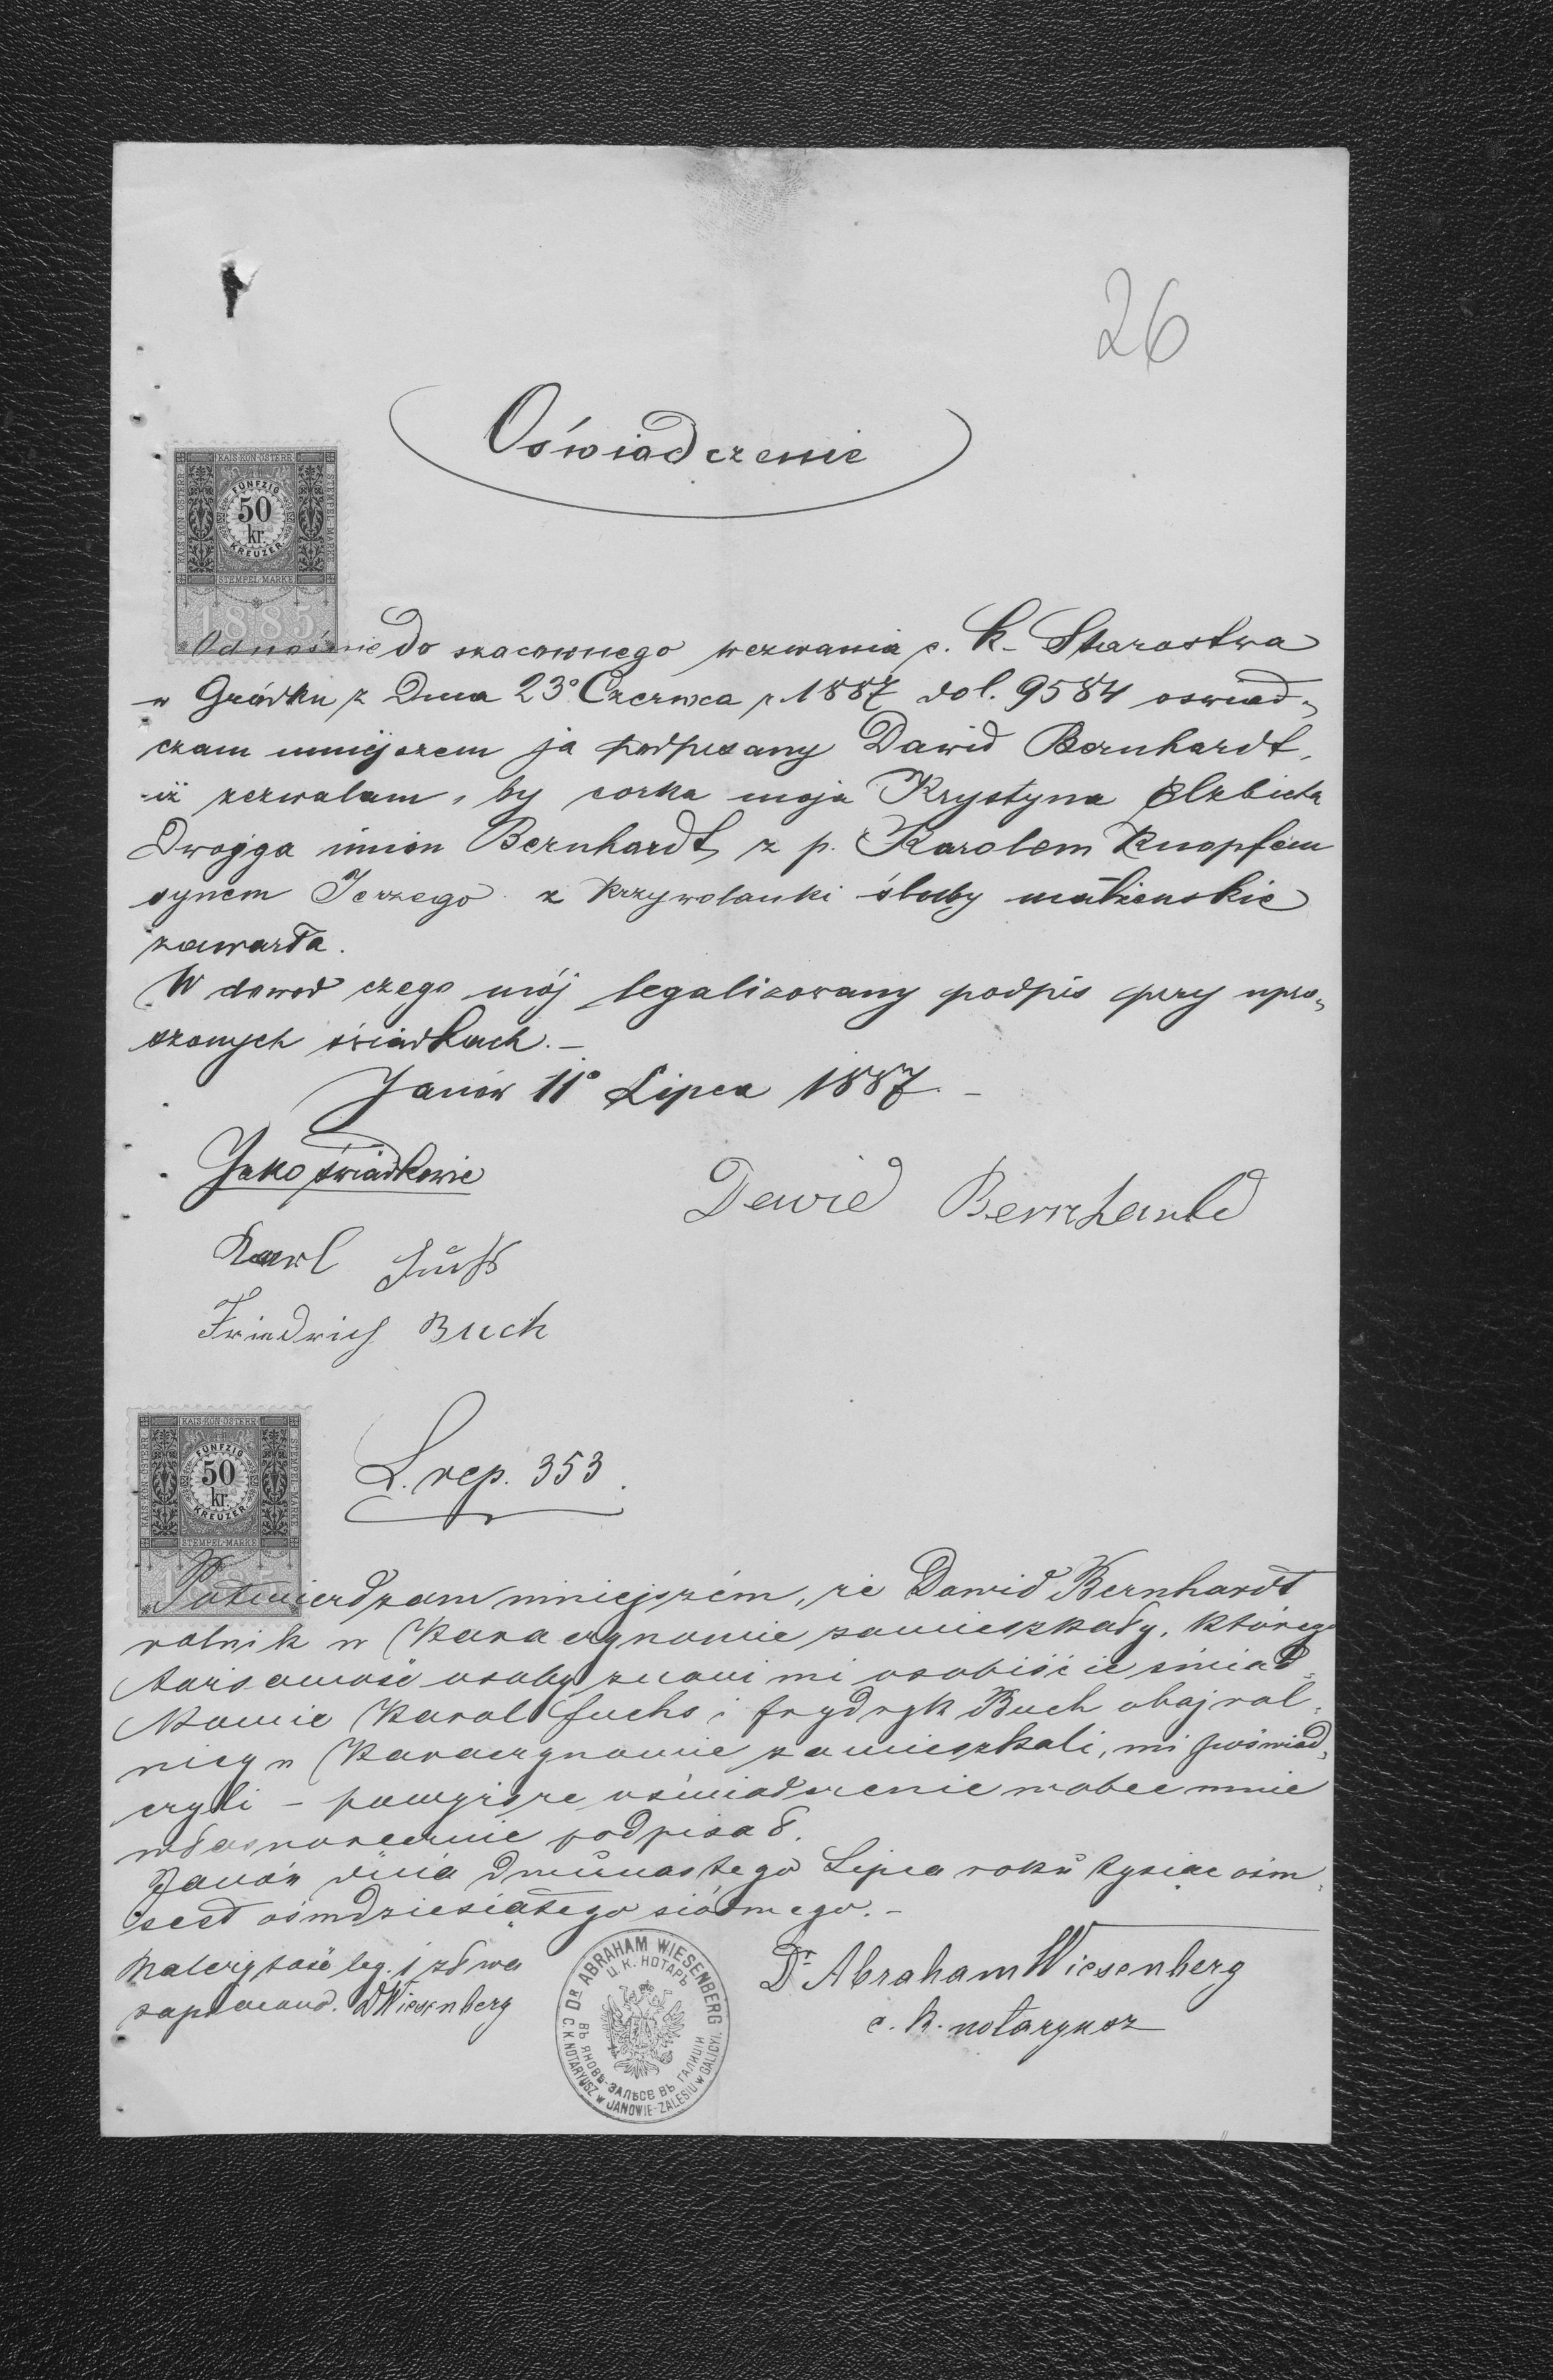 26
Oświadczenie
KAIS·KÖN·ÖSTERR·
FÜNFZIG
50
kr.
KREUZER
STEMPEL-MARKE
1885
Odnośnie do szacownego wezwania c. k. Starostwa
w Gródku z Dnia 23º Czerwca r. 1887 do l. 9584 oswiad„
czam niniejszem ja podpisany Dawid Bernhardt,
iż zezwalam, by corka moja Krystyna Elzbieta
Dwojga imion Bernhardt, z p. Karolem Knopfem
synem Jerzego z Krzywolanki śluby małżenskie
zawarła.
W dowod czego mój legalizowany podpis przy upro„
szonych świadkach.—
Janów 11º Lipca 1887.—
Jako świadkowie
Dawid Bernhardt
Karl Fuchs
Friedrich Buch
KAIS·KÖN·ÖSTERR·
FÜNFZIG
50
kr.
KREUZER
STEMPEL-MARKE
L. rep. 353.
Potwierdzam niniejszém, że Dawid Bernhardt
rolnik w zamieszkały, którego
tożsamość osoby znani mi osobiście świad„
kowie Karol Fuchs i Frydryk Buch obaj rol„
nicy w zamieszkali, mi poświad„
czyli – powyższe oświadczenie wobec mnie
własnoręcznie podpisał.
Janów dnia dwunastego Lipca roku tysiąc ośm„
set ośmdziesiątego siódmego.–
Należytość leg. 1 zł wa
zapłacono. DWiesenberg
Dr Abraham Wiesenberg
c. k. notaryusz
Dr. ABRAHAM WIESENBERG
Ц. К. НОТАРЪ
ВЪ ЯНОВѢ-ЗАЛѢСѢ ВЪ ГАЛИЦІИ
C.K. NOTARYUSZ w JANOWIE-ZALESIU w GALICYI.